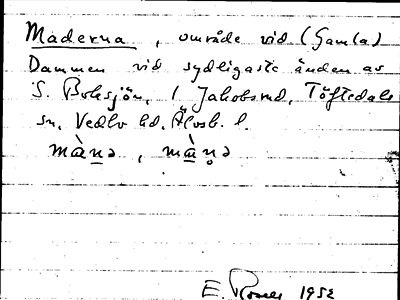 Maderna, område vid (Gamla)
Dammen vid sydligaste änden av
S. Boksjön, i Jakobsrud, Töftedals
sn, Vedbo hd, Älvsb. l.
mànə, mànə
E. 1952